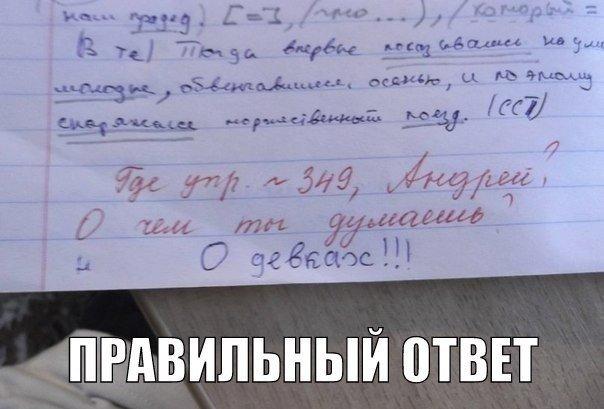 наш прадед). [=], (что...), (который =
(В те) Тогда впервые показывались на ули
молодые, обвенчавшиеся осенью, и поэтому
снаряжался торжественный поезд. (ССП)
Где упр. ~ 349, Андрей?
О чем ты думаешь?
О девках!!!
ПРАВИЛЬНЫЙ ОТВЕТ